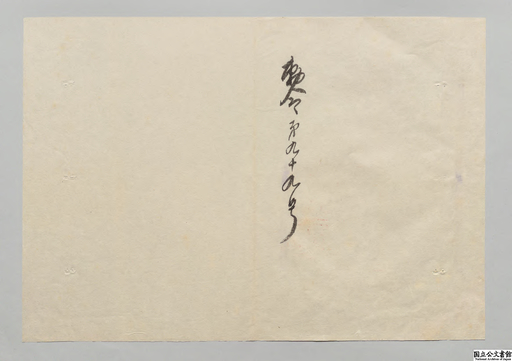 勅令第九十九号
国立公文書館
National Archives of Japan